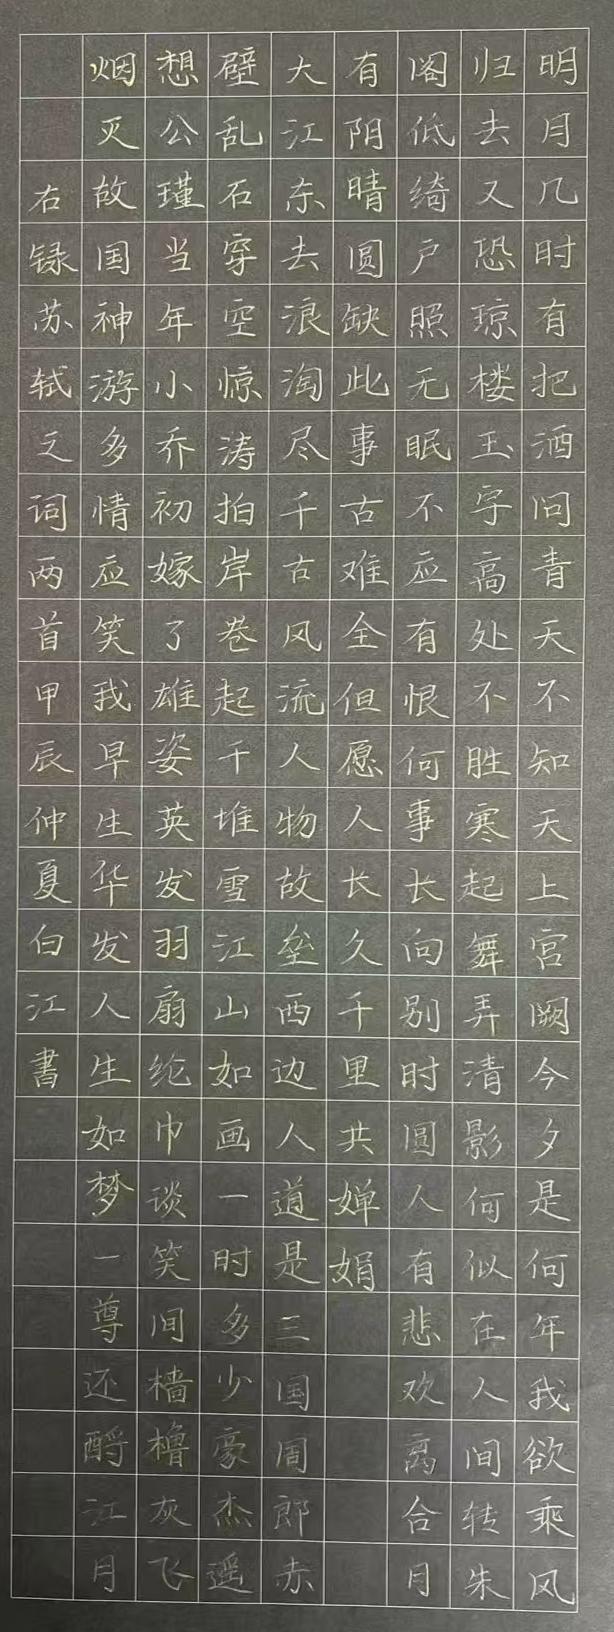 明月几时有把酒问青天不知天上宫阙今夕是何年我欲乘风
归去又恐琼楼玉宇高处不胜寒起舞弄清影何似在人间转朱
阁低绮户照无眠不应有恨何事长向别时圆人有悲欢离合月
有阴晴圆缺此事古难全但愿人长久千里共婵娟
大江东去浪淘尽千古风流人物故垒西边人道是三国周郎赤
壁乱石穿空惊涛拍岸卷起千堆雪江山如画一时多少豪杰遥
想公瑾当年小乔初嫁了雄姿英发羽扇纶巾谈笑间樯橹灰飞
烟灭故国神游多情应笑我早生华发人生如梦一尊还酹江月
右录苏轼之词两首甲辰仲夏白江書